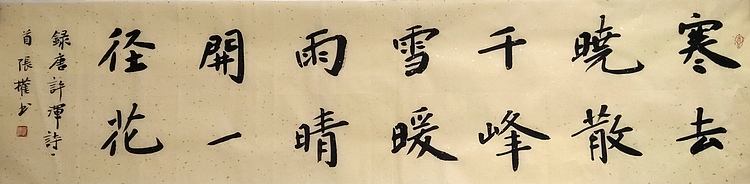 寒去
曉散
千峰
雪暖
雨晴
開一
径花
録唐許渾詩一
首張權书